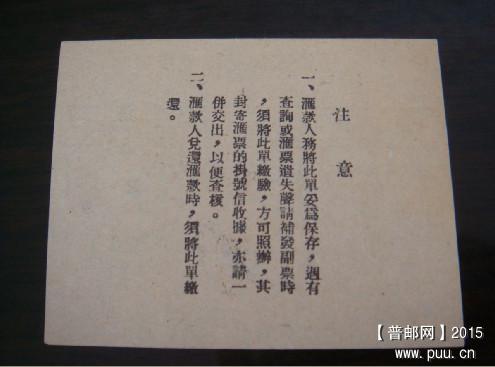 注意
一、滙款人務將此單妥爲保存，遇有
查詢或滙票遺失聲請補發副票時
，須將此單繳驗，方可照辦，其
封寄滙票的掛號信收據，亦請一
併交出，以便查核。
二、滙款人兌還滙款時，須將此單繳
還。
【普邮网】2015
www.puu.cn